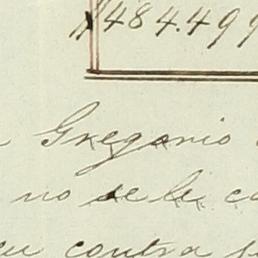 $484.499
Gregorio
no se le
contra